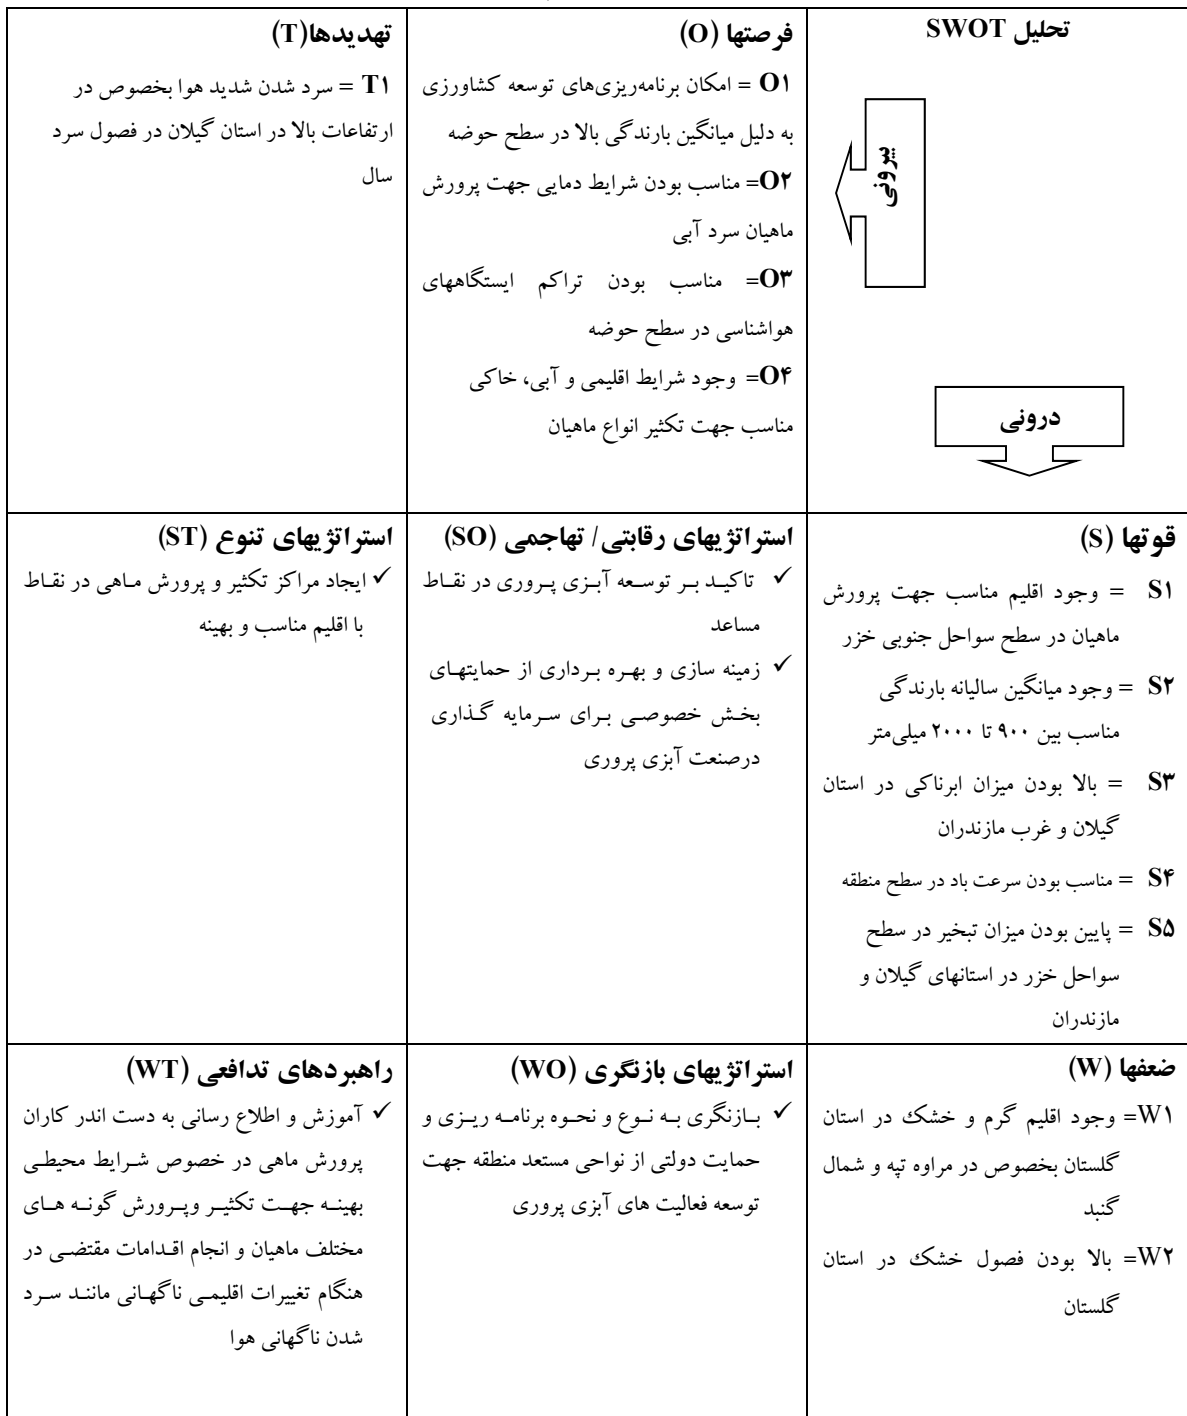 تحلیل SWOT
بیرونی
درونی
فرصتها (O)
O۱ = امکان برنامه‌ریزی‌های توسعه کشاورزی
به دلیل میانگین بارندگی بالا در سطح حوضه
O۲= مناسب بودن شرایط دمایی جهت پرورش
ماهیان سرد آبی
O۳= مناسب بودن تراکم ایستگاههای
هواشناسی در سطح حوضه
O۴= وجود شرایط اقلیمی و آبی، خاکی
مناسب جهت تکثیر انواع ماهیان
تهدیدها(T)
T۱ = سرد شدن شدید هوا بخصوص در
ارتفاعات بالا در استان گیلان در فصول سرد
سال
قوتها (S)
S۱ = وجود اقلیم مناسب جهت پرورش
ماهیان در سطح سواحل جنوبی خزر
S۲ = وجود میانگین سالیانه بارندگی
مناسب بین ۹۰۰ تا ۲۰۰۰ میلی‌متر
S۳ = بالا بودن میزان ابرناکی در استان
گیلان و غرب مازندران
S۴ = مناسب بودن سرعت باد در سطح منطقه
S۵ = پایین بودن میزان تبخیر در سطح
سواحل خزر در استانهای گیلان و
مازندران
استراتژیهای رقابتی/ تهاجمی (SO)
✓ تاکید بر توسعه آبزی پروری در نقاط
مساعد
✓ زمینه سازی و بهره برداری از حمایتهای
بخش خصوصی برای سرمایه گذاری
درصنعت آبزی پروری
استراتژیهای تنوع (ST)
✓ ایجاد مراکز تکثیر و پرورش ماهی در نقاط
با اقلیم مناسب و بهینه
ضعفها (W)
W۱= وجود اقلیم گرم و خشک در استان
گلستان بخصوص در مراوه تپه و شمال
گنبد
W۲= بالا بودن فصول خشک در استان
گلستان
استراتژیهای بازنگری (WO)
✓ بازنگری به نوع و نحوه برنامه ریزی و
حمایت دولتی از نواحی مستعد منطقه جهت
توسعه فعالیت های آبزی پروری
راهبردهای تدافعی (WT)
✓ آموزش و اطلاع رسانی به دست اندر کاران
پرورش ماهی در خصوص شرایط محیطی
بهینه جهت تکثیر وپرورش گونه های
مختلف ماهیان و انجام اقدامات مقتضی در
هنگام تغییرات اقلیمی ناگهانی مانند سرد
شدن ناگهانی هوا